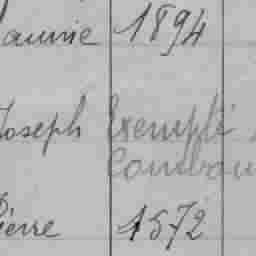 annie 1894
Joseph Exempté
Combou
Pierre 1572